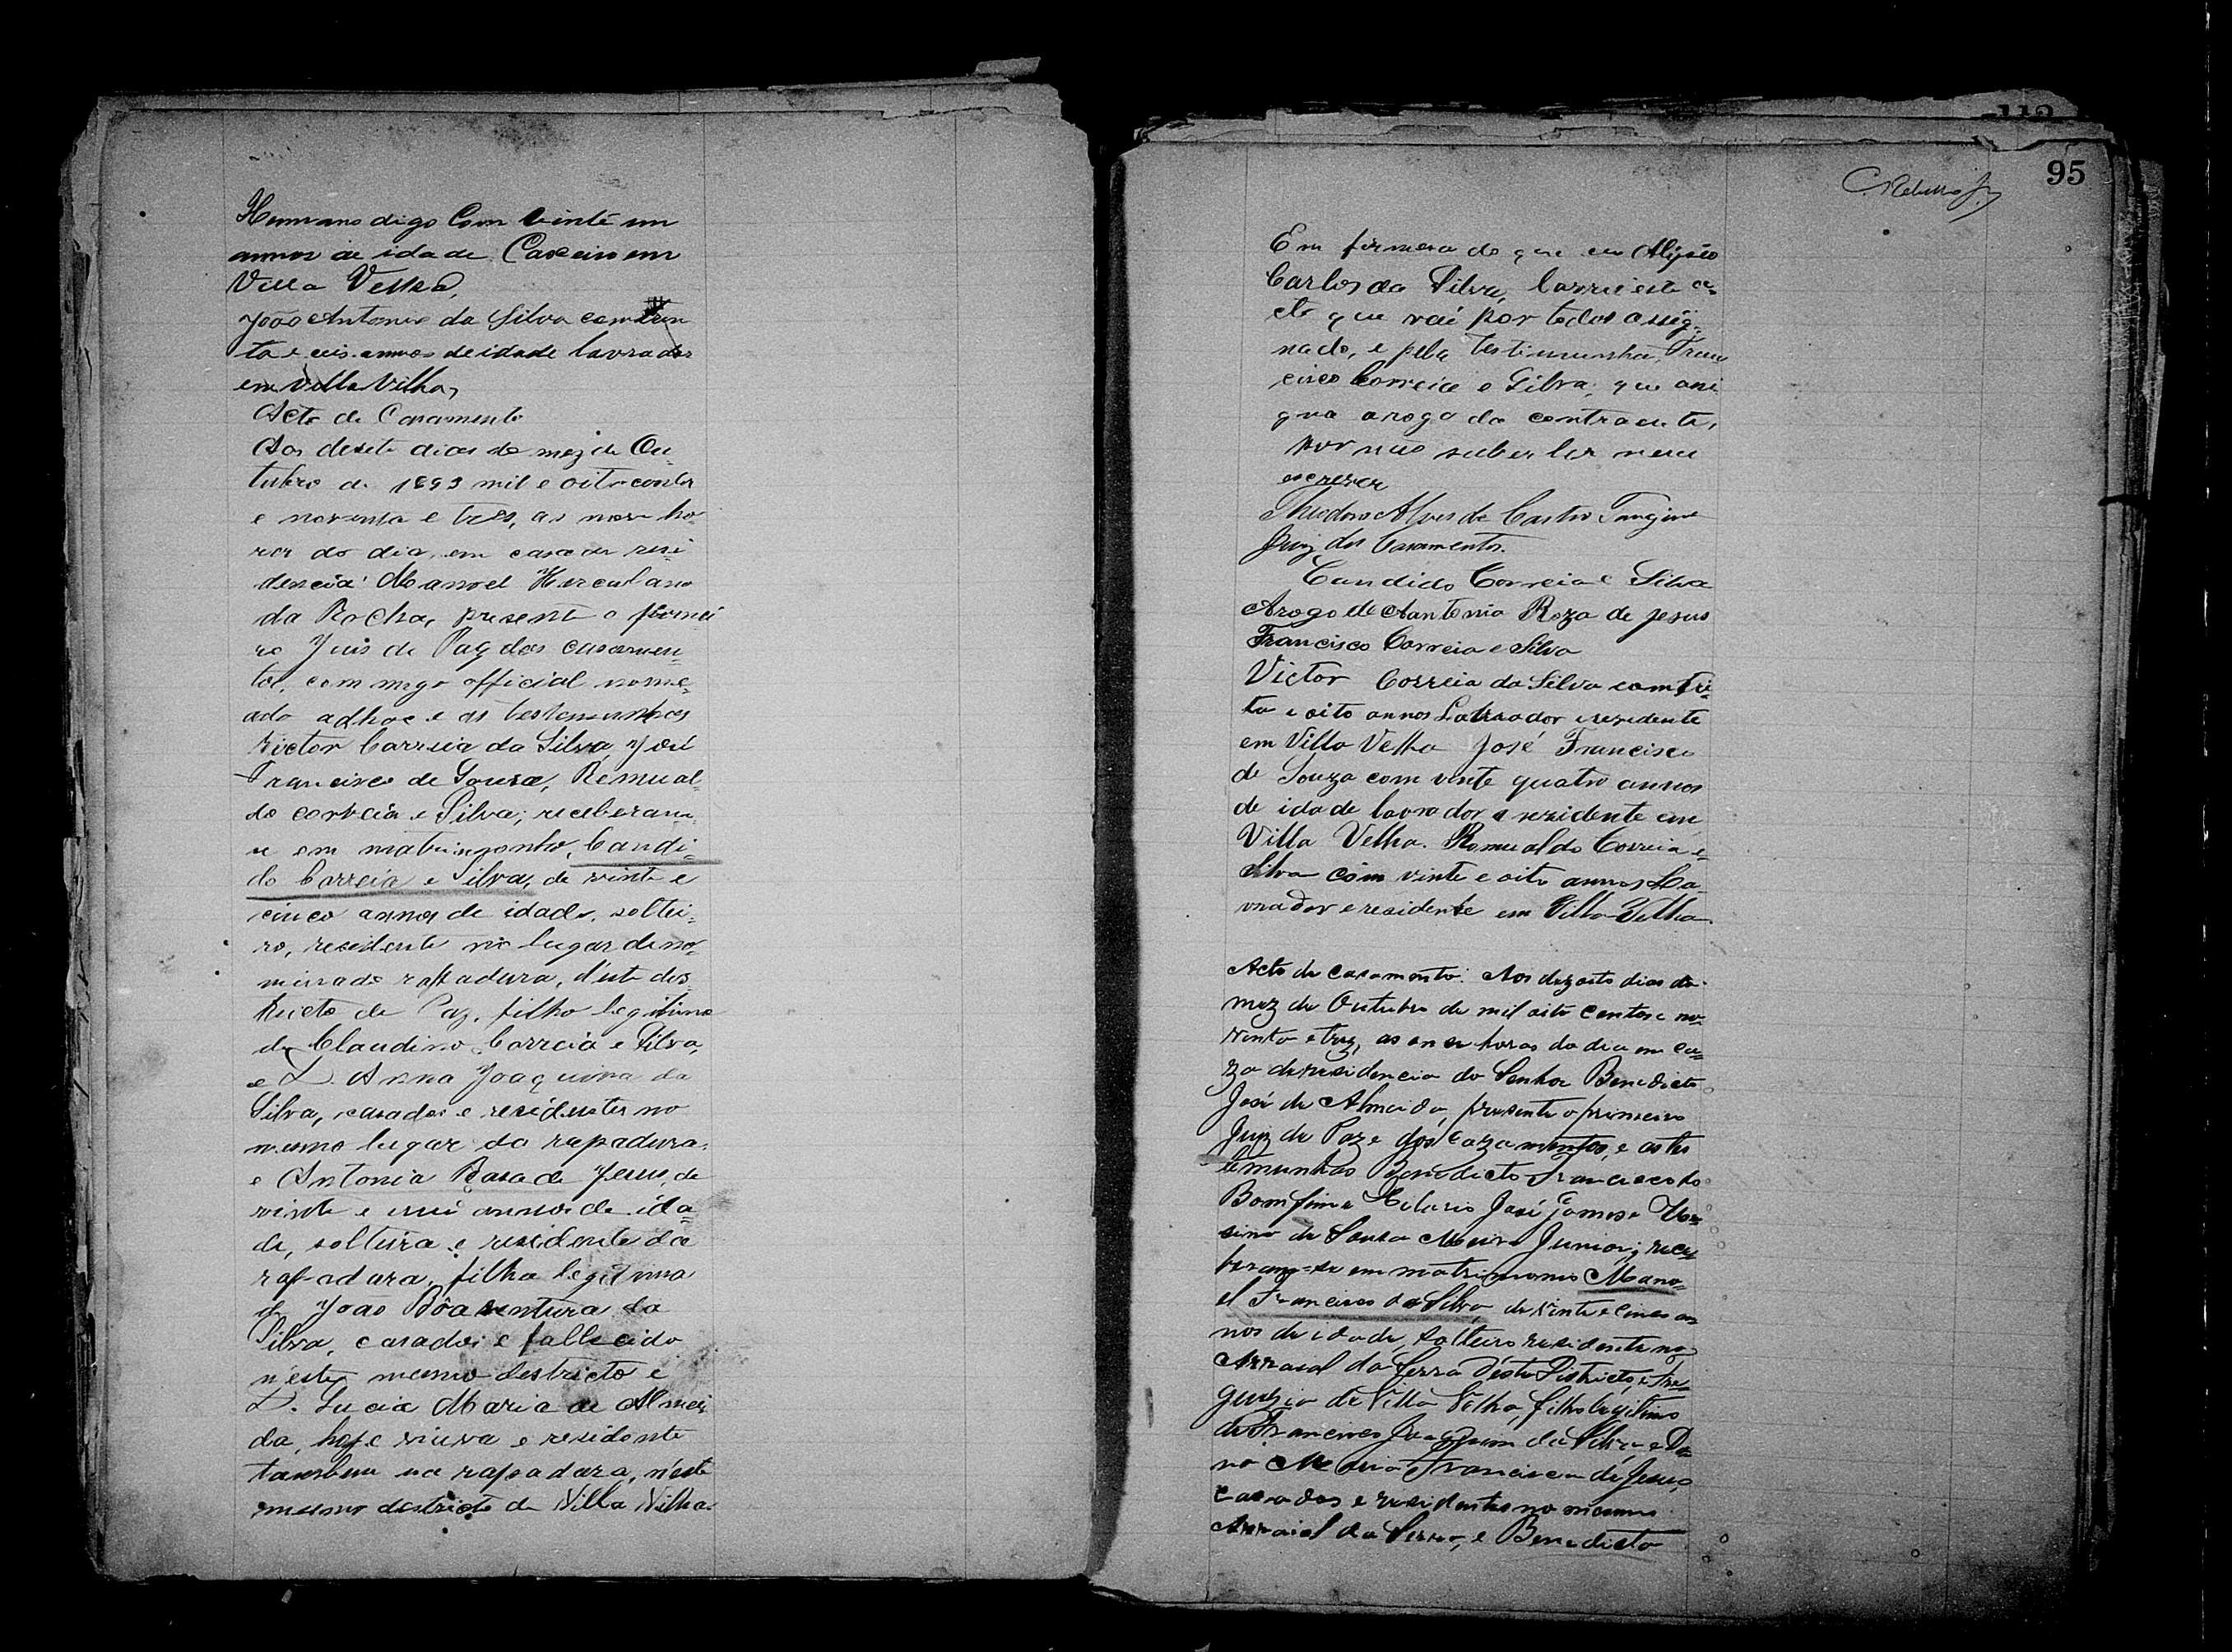 Hermano digo Com vinte um
annos de idade Caxeiro em
Villa Velha,
João Antonio da Silva com trin
ta e seis annos de idade lavrador
em Villa Velha,
Acto de Casamento
Aos desete dias do mez de Ou
tubro de 1893 mil e oito centos
e noventa e tres, as nove ho
ras do dia, em casa de resi
dencia Manoel Herculano
da Rocha, presente o primei
ro Juis de Paz dos casamen
tos, commigo official nome
ado adhoc e as testemunhas
Victor Correia da Silva, José
Francisco de Souza, Romual
do correia e Silva; receberam
se em matrimonho, Candi
do Correia e Silva, de vinte e
cinco annos de idade, soltei
ro, residente no lugar deno
minado rapadura, d'este des
tricto de Paz, filho legitimo
de Claudino Correia e Silva,
e D. Anna Joaquina da
Silva, casados e residentes no
mesmo lugar da rapadura,
e Antonia Rosa de Jesus, de
vinte e annos de ida
de, solteira e residente da
rapadura, filha legitima
de João Bôaventura da
Silva, casado, e fallecido
n'este mesmo destricto e
D. Lucia Maria de Almei
da, hoje viuva e residente
tambem na rapadura, n'este
mesmo destricto de Villa Velha
95
Em firmesa do que eu
Carlos da Silva, lavrei este a
cto que vai por todos assig
nado, e pela testimunha, Fran
cisco Correia e Silva, que assi
gna arogo da contraente,
por nao saber ler nem
escrever
Theodoro Alves de Castro
Juiz dos Casamentos.
Candido Correia e Silva
Arogo de Aantonia Roza de Jesus
Francisco Correia e Silva
Victor Correia da Silva com tri
ta e oito annos Lavrador e rezidente
em Villa Velha José Francisco
de Souza com vinte quatro annos
de idade lavrador e rezidente em
Villa Velha. Romualdo Correia e
Silva com vinte e oito annos La
vrador e residente em Villa Velha
Acto de casamento. Aos dezoito dias do
mez de Outubro de mil oito centos e no
venta e trez, as onze horas do dia em ca
za de residencia do Senhor Benedicto
José de Almeida, presente o primeiro
Juiz de Paz e dos cazamentos, e as tes
temunhas Benedicto Francisco do
Bomfim e Hilario José Gomes e Ur
sino de Sousa Meira Junior; rece
beram-se em matrimonio Mano
el Francisco da Silva, de vinte e cinco an
nos de idade, solteiro residente no
Arraial da Serra d'este Districto, e Fre
guezia de Villa Velha, filho legitimo
de Francisco Joaquim da Silva e Do
na Maria Francisca de Jesus,
casados e residentes no mesmo
Arraial da Serra, e Benedicta